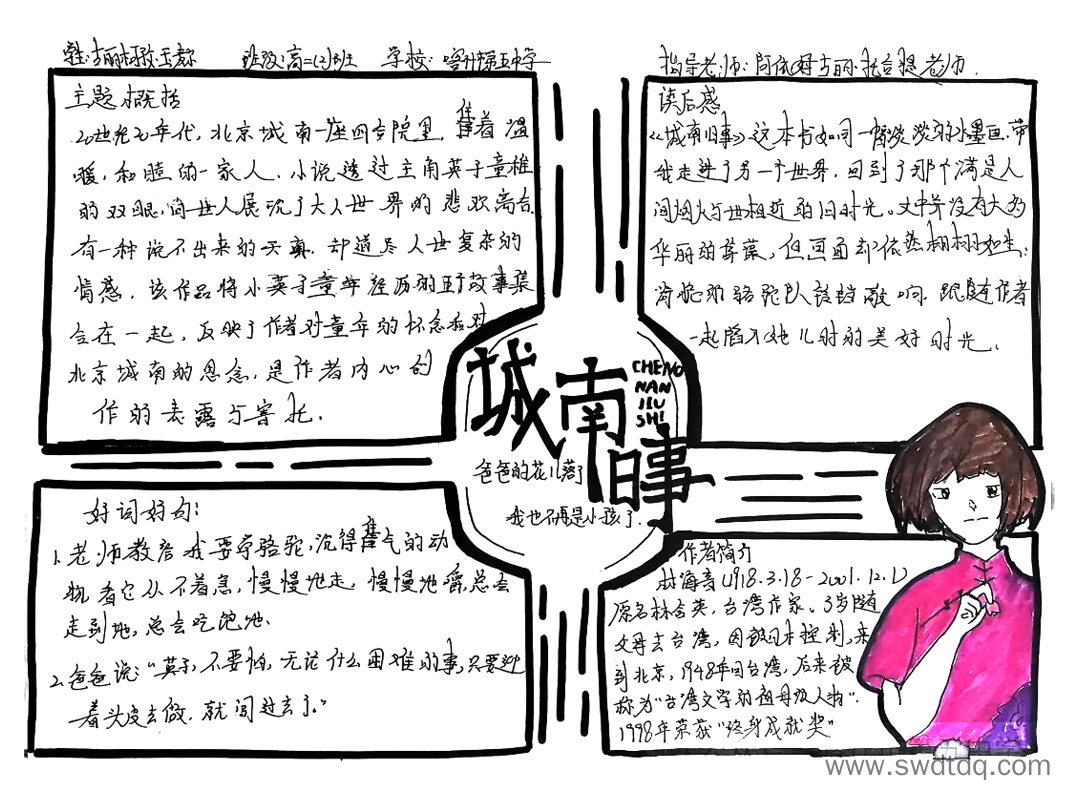 班级:高二(2)班 学校: 喀什第五中学
指导老师:阿依努古丽·托合提老师.
主题概括
20世纪20年代, 北京城南一座四合院里, 住着温
暖, 和睦的一家人. 小说透过主角英子童稚
的双眼, 向世人展现了大人世界的悲欢离合
有一种说不出来的天真, 却道尽人世复杂的
情感. 该作品将小英子童年经历的故事集
合在一起, 反映了作者对童年的怀念和对
北京城南的思念, 是作者内心创
作的表露与寄托.
读后感
《城南旧事》这本书如同一幅淡淡的水墨画, 带
我走进了另一个世界, 回到了那个满是人
间烟火与世相近的旧时光。文中并没有大多
华丽的辞藻, 但画面却依然栩栩如生:
骆驼队铛铛敲响, 跟随作者
一起陷入她儿时的美好时光.
城南旧事
CHENG
NAN
JIU
SHI
爸爸的花儿落了
我也不再是小孩了.
好词好句:
1. 老师教给我要学骆驼, 沉得住气的动
物 看它从不着急, 慢慢地走, 慢慢地嚼, 总会
走到地, 总会吃饱地.
2. 爸爸说: “英子, 不要怕, 无论什么困难的事, 只要硬
着头皮去做, 就闯过去了。”
作者简介
林海音 (1918.3.18-2001.12.1)
原名林含英, 台湾作家。3岁随
父母去台湾, 因被日本控制, 来
到北京, 1948年回台湾, 后来被
称为“台湾文学的祖母级人物”.
1998年荣获“终身成就奖”
www.swdtdq.com